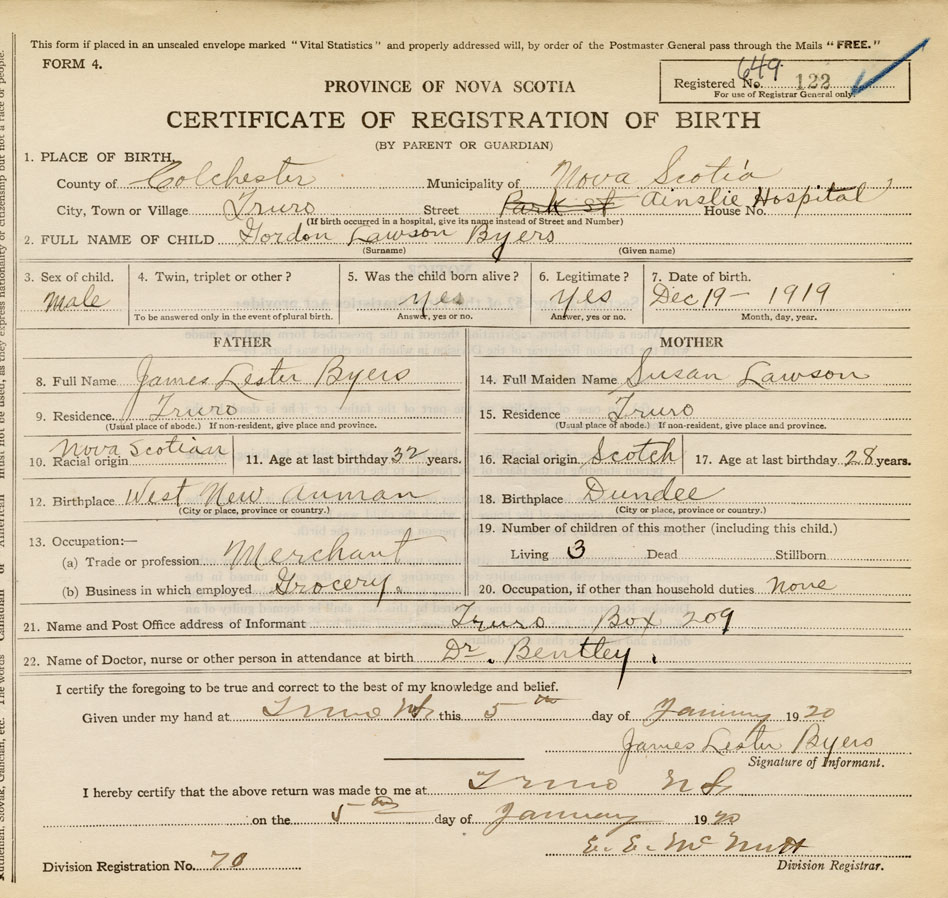 This form if placed in an unsealed envelope marked "Vital Statistics" and properly addressed will, by order of the Postmaster General pass through the Mails "FREE."
FORM 4.
649
Registered No. 122
For use of Registrar General only.
PROVINCE OF NOVA SCOTIA
CERTIFICATE OF REGISTRATION OF BIRTH
(BY PARENT OR GUARDIAN)
1. PLACE OF BIRTH
County of Colchester Municipality of Nova Scotia
City, Town or Village Truro Street Park St Ainslie House No. Hospital
(If birth occurred in a hospital, give its name instead of Street and Number)
2. FULL NAME OF CHILD Gordon Lawson Byers
(Surname) (Given name)
3. Sex of child. 4. Twin, triplet or other? 5. Was the child born alive? 6. Legitimate? 7. Date of birth.
Male yes Yes Dec 19 - 1919
To be answered only in the event of plural birth. Answer, yes or no. Answer, yes or no. Month, day, year.
FATHER
8. Full Name James Lester Byers
9. Residence Truro
(Usual place of abode.) If non-resident, give place and province.
10. Racial origin Nova Scotian 11. Age at last birthday 32 years.
12. Birthplace West New Annan
(City or place, province or country.)
13. Occupation:—
(a) Trade or profession Merchant
(b) Business in which employed Grocery.
MOTHER
14. Full Maiden Name Susan Lawson
15. Residence Truro
(Usual place of abode.) If non-resident, give place and province.
16. Racial origin Scotch 17. Age at last birthday 28 years.
18. Birthplace Dundee
(City or place, province or country.)
19. Number of children of this mother (including this child.)
Living 3 Dead Stillborn
20. Occupation, if other than household duties None
21. Name and Post Office address of Informant Truro Box 209
22. Name of Doctor, nurse or other person in attendance at birth Dr. Bentley.
I certify the foregoing to be true and correct to the best of my knowledge and belief.
Given under my hand at Truro NS this 5th day of January 1920
James Lester Byers
Signature of Informant.
I hereby certify that the above return was made to me at Truro N S
on the 5th day of January 1920
E. E. McNutt
Division Registration No. 70 Division Registrar.